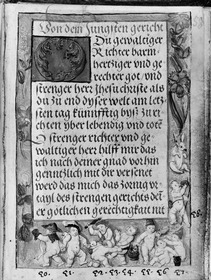 Von dem Jungsten gericht
Du gewaltiger
Richter barm
hertziger vnd ge
rechter got. vnd
strenger herr Jhesu christe als
du zu end dyser welt am letz
sten tag künnfftig byst zu ri
chten yber lebendig vnd todt
O strenger richter vnd ge
waltiger herr hilff mir das
ich nach deiner gnad vor hin
genntzlich mit dir versenet
werd das mich das zornig vr
tayl des strengen gerichts det
er götlichen gerechtigkait nit
50. 51. 52. 53. 54. 55. 56. 57.
58.